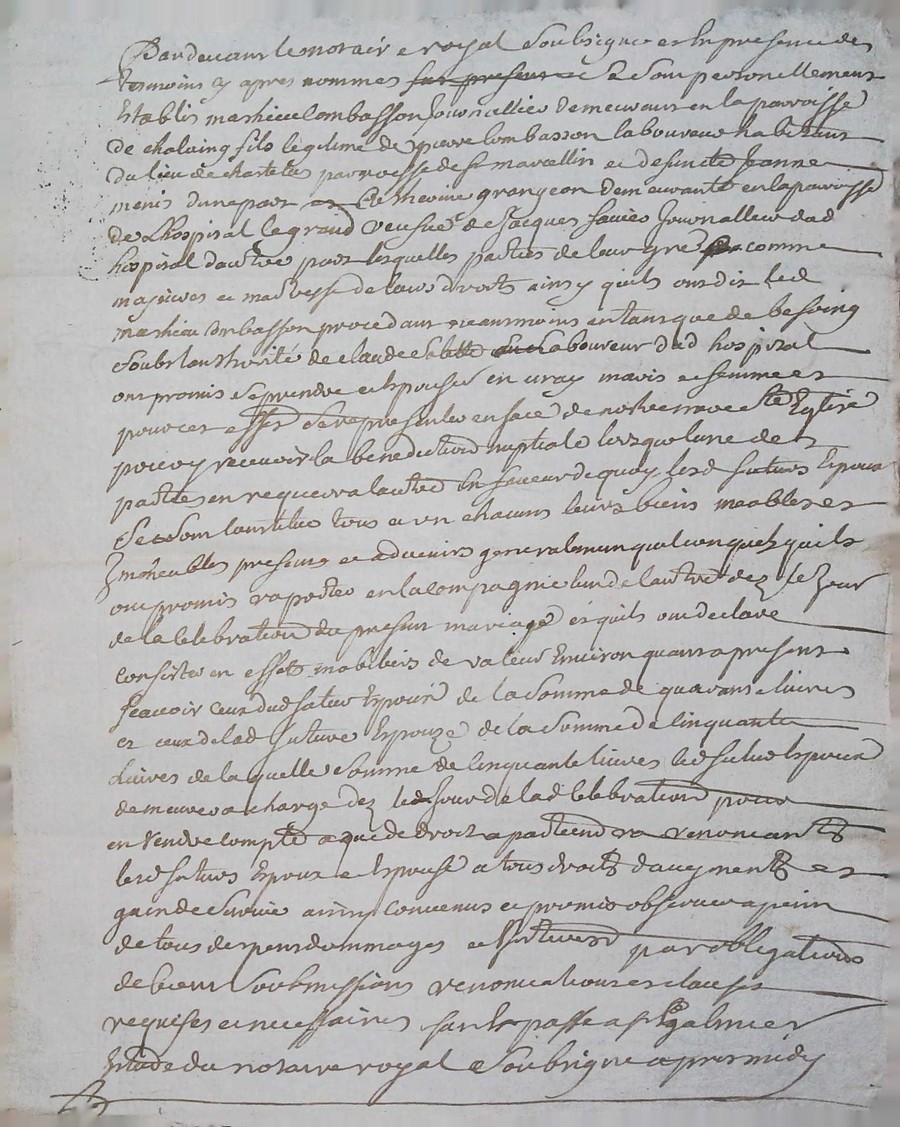 Pardevant le notaire royal Soubsigné et En presence des
tesmoins cy apres nommes sur presence Se Sont personellement
Etablis mathieu lombasson Journallier demeurant en la parroisse
de chalaing fils legitime de pierre lombasson laboureur habitant
du lieu de parroisse de st marcellin et de functe Jeanne
dune part et Claude marine grangeon demeurante en la parroisse
de Lhospital le grand veufue de Jacques Journallier dud
hospital dautre part lesquelles parties de leur gré comme
majeures et maitresse de leurs droits ainsy quils ont dit led
mathieu lombasson procedant neantmoins en tant que de besoing
soubs lauthorité de claude laboureur dud hospital
ont promis Se prendre et Epouser en vray maris et femme et
pour cet effet Se representer en face de nostre mere ste Eglize
pour y recevoir la benediction nuptiale lorsque lune des
parties en requerera lautre En faveur de quoy lesd futurs Epoux
Se sont Constitué tous et un chacuns leurs biens meubles et
Immeubles presents et advenirs generalement quelconques quils
ont promis raporter en la compagnie lun de lautre dez le Jour
de la celebration du present mariage et quils ont declaré
consister en effets mobiliers de valeur Environ quant a present
Scavoir ceux dud futur Epoux de la Somme de quarante livres
et ceux de lad future Epouze de la Somme de Cinquante
Livres de laquelle Somme de Cinquante livres led futur Epoux
demeurera chargé dez led Jour de lad Celebration pour
en rendre compte a qui de droit apartiendra renoncants
lesd futurs Epoux et Epouse a tous droits daugments et
gain de Survie ainsy convenus et promis observer a peine
de tous despens dommages et Interests par obligations
de biens Soubmissions renonciations et clauses
requises et necessaires fait et passé a st Galmier
Etude du notaire royal Soubsigné apres midy